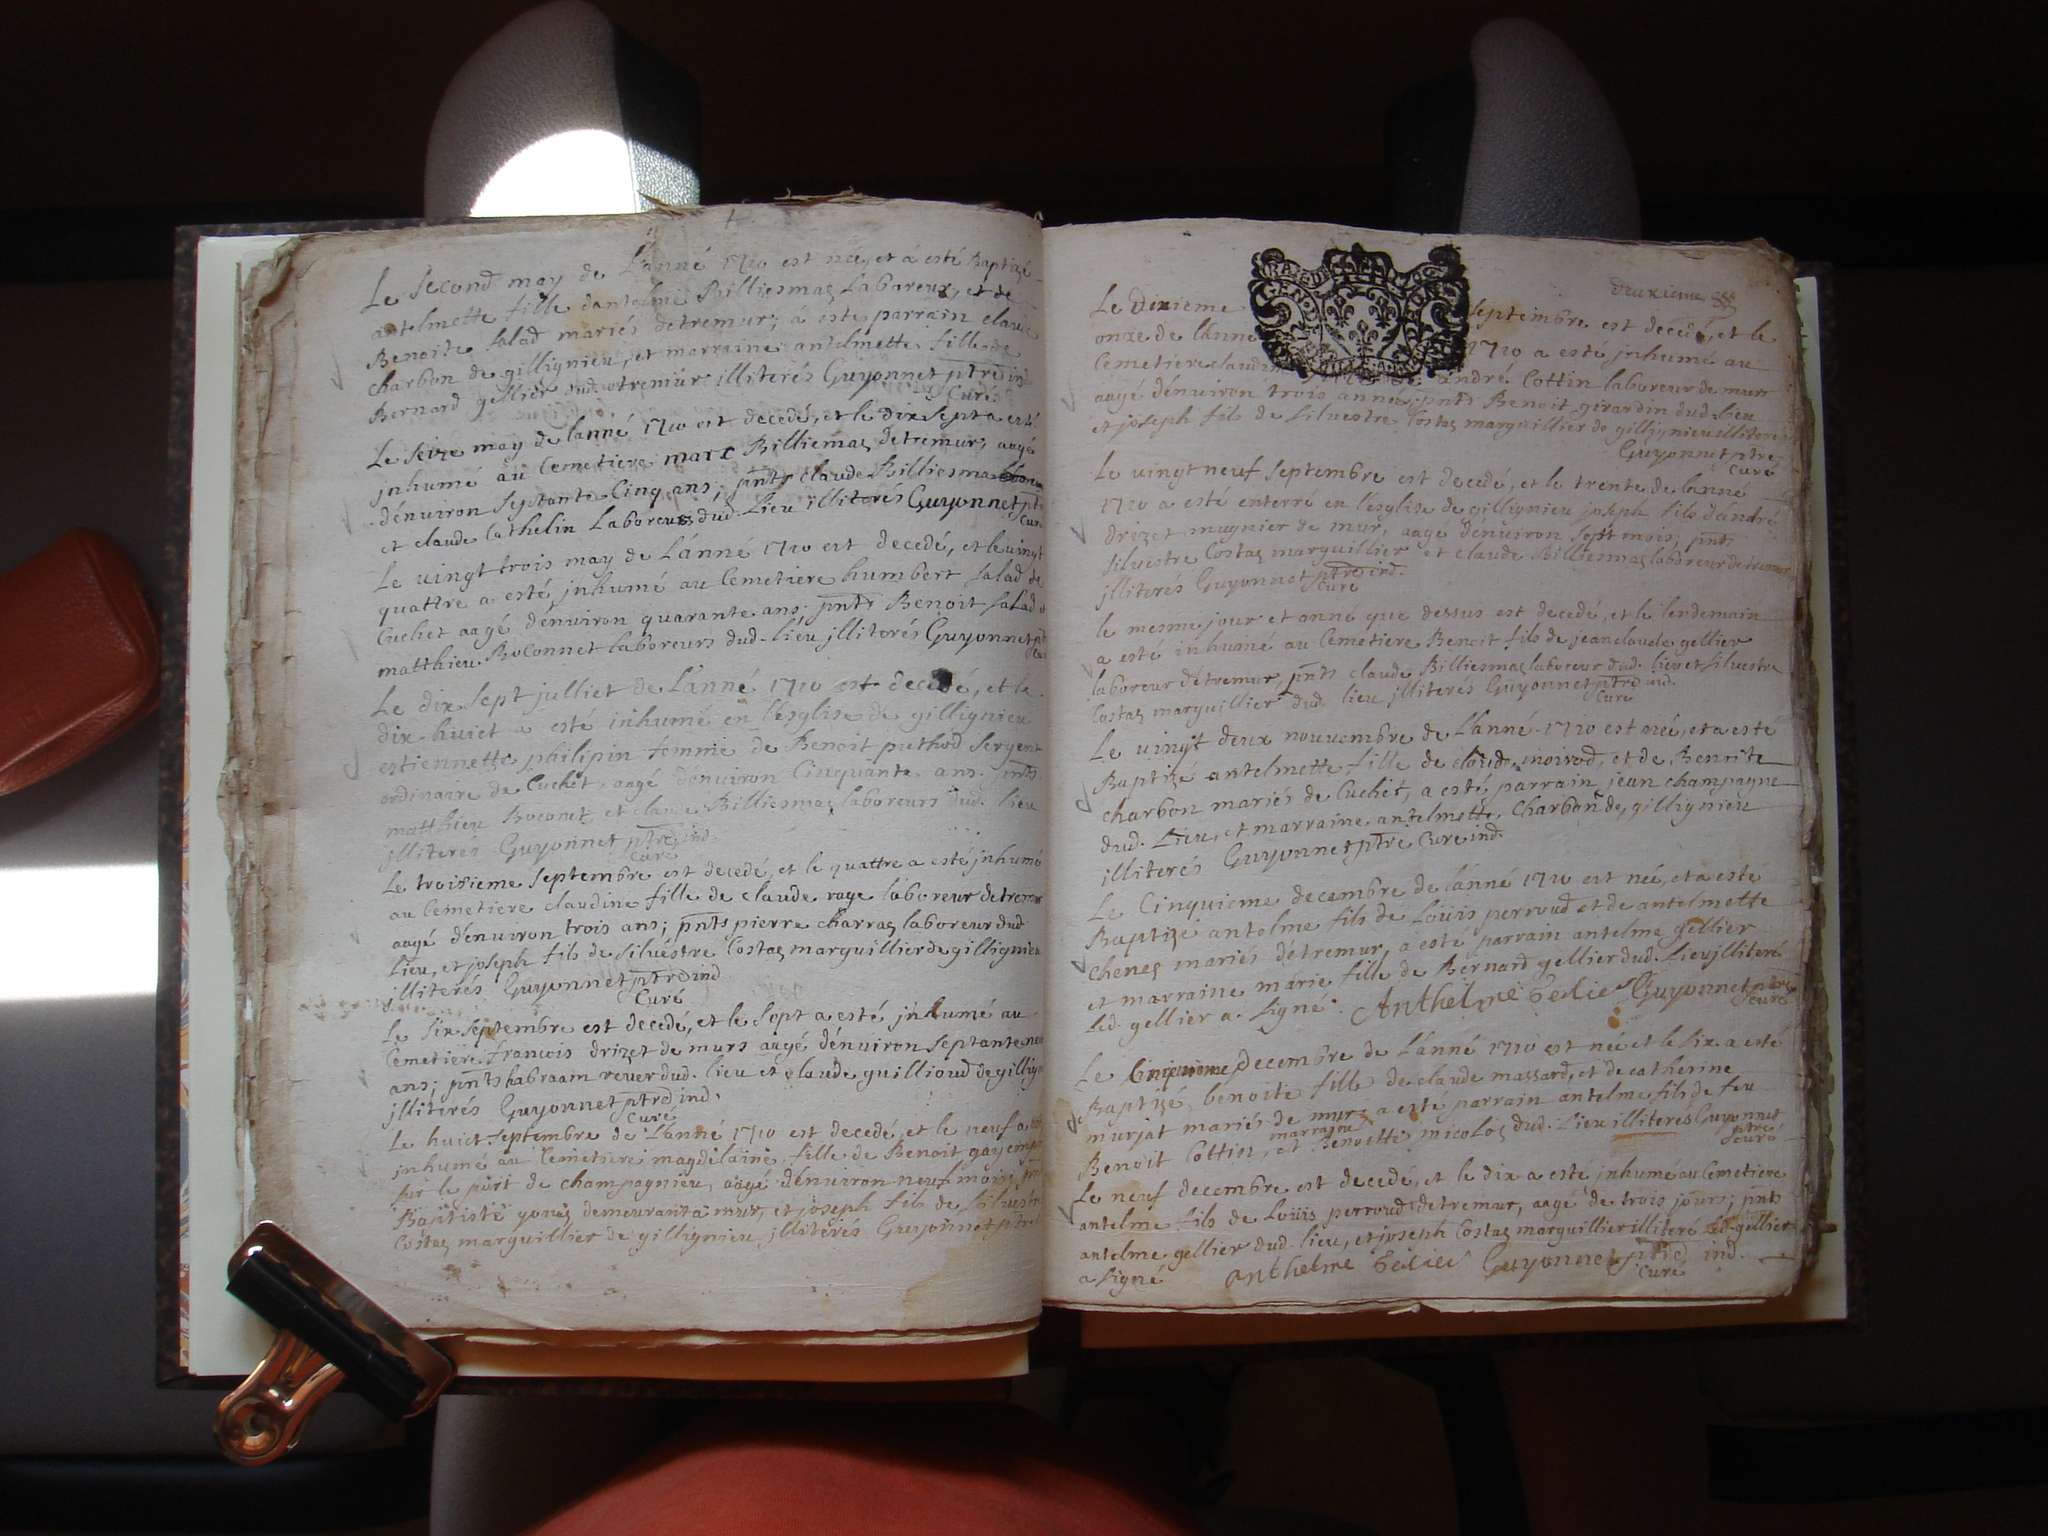 Le second may de L'anné 1710 est née, et a esté Baptizé
antelmette fille dantelme Billiesmaz Laboreur, et de
Benoite salad mariés detremur; a esté parrain claude
charbon de gillignieu, et marraine antelmette fille de
Bernard gellier dud. tremur illiterés Guyonnet ptre ind
Curé
Le seize may de lanné 1710 est decedé, et le dix sept a esté
jnhumé au Cemetiere marc Billiemaz detremur, aagé
dénuiron septante Cinq ans; pnts claude Billiesmaz
et claude Cathelin Laboreurs dud. Lieu illiterés Guyonnet pt
Curé
Le vingt trois may de L'anné 1710 est decedé, et le vingt
quattre a esté jnhumé au Cemetiere humbert salad de
Cuchet aagé dénuiron quarante ans; pnts Benoit salad et
matthieu Boconnet laboreurs dud. liéu jlliterés Guyonnet
Le dix sept julliet de L'anné 1710 est decedé, et le
dix huict a esté inhumé en l'esglise de gillignieu
estiennette philipin femme de Benoit puthod sergent
ordinaire de Cuchet, aagé dénuiron Cinquante ans. pnts
matthieu Boconet, et claude Billiesmaz laboreurs dud. lieu
jlliterés Guyonnet ptre ind.
Curé
Le troisieme septembre est decedé, et le quattre a esté jnhumé
au Cemetiere claudine fille de claude raye laboreur detremur
aagé dénuiron trois ans; pnts pierre charraz laboreur dud
Lieu, et joseph fils de silvéstre Costaz marguillier de gillignieu
jlliterés Guyonnet ptre ind
Curé
Le six septembre est decedé, et le sept a esté jnhumé au
Cemetiere francois drizet de murs aagé dénuiron septante neuf
ans; pnts habraam reuer dud. lieu et claude guillioud de gillign
jlliterés Guyonnet ptre ind.
Curé
Le huict septembre de L'anné 1710 est decedé, et le neuf a
jnhumé au Cemetiere magdelaine fille de Benoit gay
sur le port de champagnieu, aagé dénuiron neuf mois,
Baptiste yonez demeurant a mur, et joseph fils de silvestre
Costaz marguillier de gillignieu jlliterés Guyonnet ptre
deuxieme
Le dixieme septembre est decedé, et le
onze de l'anné 1710 a esté jnhumé au
Cemetiere claudine andré Cottin laboreur de mur
aagé dénuiron trois années; pnts Benoit girardin dud. lieu
et joseph fils de silvestre Costaz marguillier de gillignieu illiterés
Guyonnet ptre
Curé
Le vingt neuf septembre est decedé, et le trente de lanné
1710 a esté enterré en l'esglise de gillignieu joseph fils d'andré
drizet mugnier de mur, aagé dénuiron sept mois; pnts
silvestre Costaz marguillier et claude Billiesmaz laboreur de tremur
jlliterés Guyonnet ptre ind.
Curé
le mesme jour et anné que dessus est decedé, et le lendemain
a esté inhumé au Cemetiere Benoit fils de jean claude gellier
laboreur detremur, pnts claude Billiesmaz laboreur dud. lieu et silvestre
Costaz marguillier dud. lieu jlliterés Guyonnet ptre ind.
Curé
Le vingt deux nouuembre de L'anné 1710 est née, et a esté
Baptizé antelmette fille de claude moirod, et de Benoite
charbon mariés de Cuchet, a esté parrain jean champagne
dud. Lieu, et marraine antelmette Charbon de gillignieu
illiterés Guyonnet ptre Curé ind.
Le Cinquieme decembre de lánné 1710 est née, et a esté
Baptizé antelme fils de Loüis perroud et de antelmette
chenez mariés détremur, a esté parrain antelme gellier
et marraine marie fille de Bernard gellier dud. Lieu jlliteré
Led. gellier a signé. Anthelme Gelier Guyonnet ptre
Curé
Le Cinquieme Decembre de L'anné 1710 est née et le six a esté
Baptizé benoite fille de claude massard, et de catherine
murjat mariés de murs a esté parrain antelme fils de feu
marraine
Benoit Cottin, et Benoitte nicoloz dud. Lieu illiterés Guyonnet
ptre
Curé
Le neuf decembre est decedé, et le dix a esté jnhumé au Cemetiere
antelme fils de Loüis perroud detremur, aagé de trois jours; pnts
antelme gellier dud. lieu, et joseph Costaz marguillier illiteré led. gellier
a signé anthelme Gelier Guyonnet ptre ind.
Curé